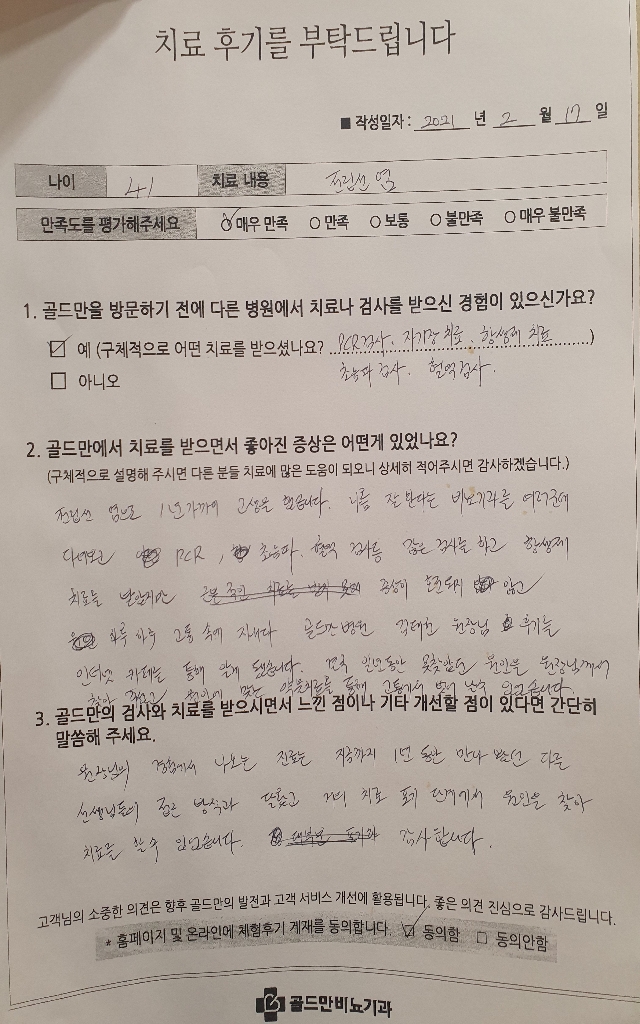 치료 후기를 부탁드립니다
■ 작성일자 : 2021 년 2 월 17 일
나이 41 치료 내용 전립선 염
만족도를 평가해주세요 매우 만족 ○ 만족 ○ 보통 ○ 불만족 ○ 매우 불만족
1. 골드만을 방문하기 전에 다른 병원에서 치료나 검사를 받으신 경험이 있으신가요?
☑ 예 (구체적으로 어떤 치료를 받으셨나요? PCR검사, 자기장 치료, 항생제 치료)
초음파 검사, 혈액검사.
☐ 아니오
2. 골드만에서 치료를 받으면서 좋아진 증상은 어떤게 있었나요?
(구체적으로 설명해 주시면 다른 분들 치료에 많은 도움이 되오니 상세히 적어주시면 감사하겠습니다.)
전립선 염으로 1년 가까이 고생을 했습니다. 나름 잘 본다는 비뇨기과를 여러군데
다녀보고 PCR, 초음파, 혈액 검사등 많은 검사를 하고 항생제
치료를 받았지만 증상이 호전되지 않고
하루 하루 고통 속에 지내다 골드만 병원 원장님 후기를
인터넷 카페를 통해 알게 됐습니다. 일년동안 못찾았던 원인을 원장님께서
찾아 주셨고 맞는 약물치료를 통해 고통에서 벗어 날수 있었습니다.
3. 골드만의 검사와 치료를 받으시면서 느낀 점이나 기타 개선할 점이 있다면 간단히
말씀해 주세요.
원장님의 경험에서 나오는 진료는 지금까지 1년 동안 만나 봤던 다른
선생님들의 접근 방식과 달랐고 저의 치료 초기 단계에서 원인을 찾아
치료를 할수 있었습니다. 감사합니다.
고객님의 소중한 의견은 향후 골드만의 발전과 고객 서비스 개선에 활용됩니다. 좋은 의견 진심으로 감사드립니다.
* 홈페이지 및 온라인에 체험후기 게재를 동의합니다. ☑ 동의함 ☐ 동의안함
골드만비뇨기과